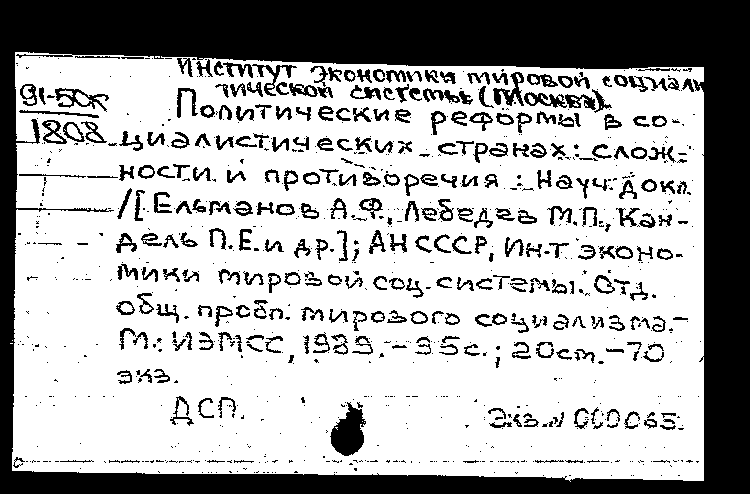 Институт экономики мировой социали
91-50к
тической системы (Москва).
Политические реформы в со-
1808
циалистических странах: слож-
ности и противоречия : Науч. докл.
/[Ельманов А.Ф., Лебедев М.П., Кан-
дель П.Е. и др.]; АН СССР, Ин-т эконо-
мики мировой соц. системы. Отд.
общ. пробл. мирового социализма.-
М.: ИЭМСС, 1989.-95с.; 20см.-70
экз.
ДСП.
Экз. N 000065.